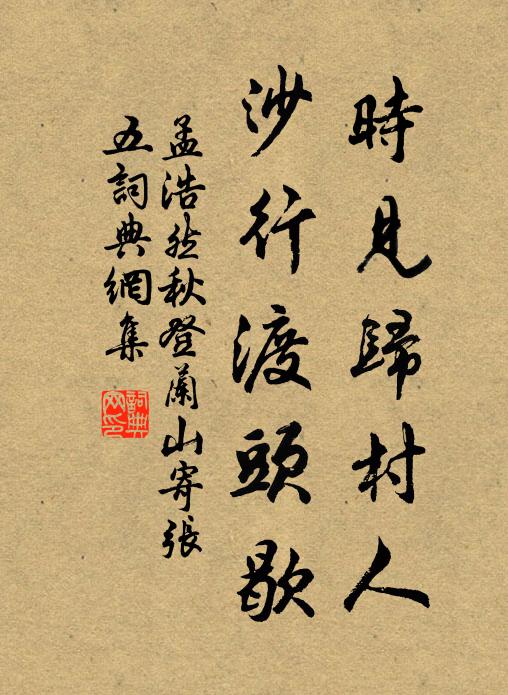 時見歸村人
沙行渡頭歇
孟浩然秋登蘭山寄張
五詞典網集
詞典
网印